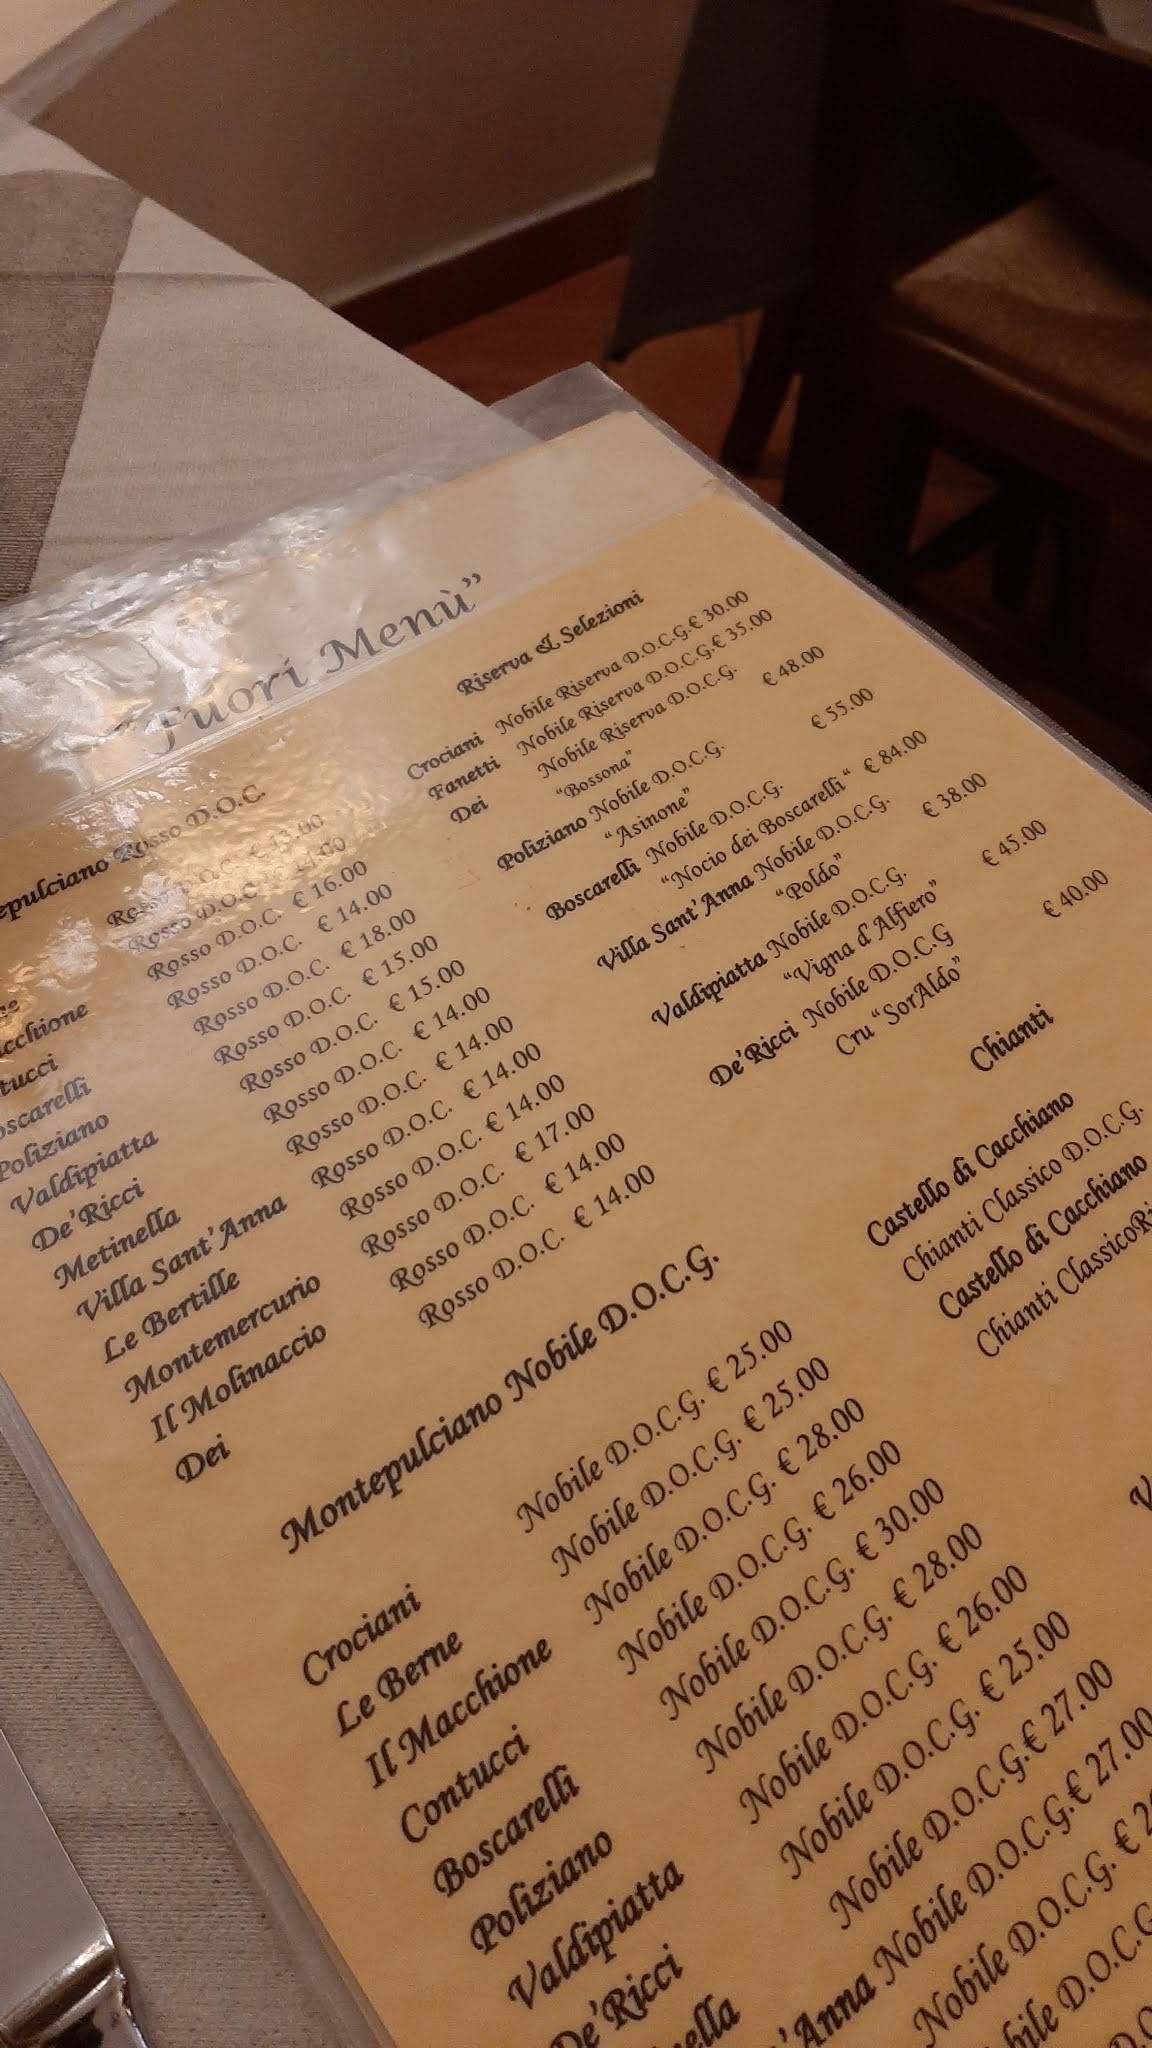 "Fuori Menù"
epulciano Rosso D.O.C.
Rosso D.O.C. € 13.00
Rosso D.O.C. € 14.00
cchione Rosso D.O.C. € 16.00
tucci Rosso D.O.C. € 14.00
oscarelli Rosso D.O.C. € 18.00
Poliziano Rosso D.O.C. € 15.00
Valdipiatta Rosso D.O.C. € 15.00
De'Ricci Rosso D.O.C. € 14.00
Metinella Rosso D.O.C. € 14.00
Villa Sant'Anna Rosso D.O.C. € 14.00
Le Bertille Rosso D.O.C. € 14.00
Montemercurio Rosso D.O.C. € 17.00
Il Molinaccio Rosso D.O.C. € 14.00
Dei Rosso D.O.C. € 14.00
Montepulciano Nobile D.O.C.G.
Crociani Nobile D.O.C.G. € 25.00
Le Berne Nobile D.O.C.G. € 25.00
Il Macchione Nobile D.O.C.G. € 28.00
Contucci Nobile D.O.C.G. € 26.00
Boscarelli Nobile D.O.C.G. € 30.00
Poliziano Nobile D.O.C.G. € 28.00
Valdipiatta Nobile D.O.C.G. € 26.00
De'Ricci Nobile D.O.C.G. € 25.00
nella Nobile D.O.C.G.€ 27.00
'Anna Nobile D.O.C.G.€ 27.00
Nobile D.O.C.G. € 2
bile D.O.C.G
D.O
Riserva & Selezioni
Crociani Nobile Riserva D.O.C.G.€ 30.00
Fanetti Nobile Riserva D.O.C.G.€ 35.00
Dei Nobile Riserva D.O.C.G.
"Bossona" € 48.00
Poliziano Nobile D.O.C.G.
"Asinone" € 55.00
Boscarelli Nobile D.O.C.G.
"Nocio dei Boscarelli" € 84.00
Villa Sant'Anna Nobile D.O.C.G.
"Poldo" € 38.00
Valdipiatta Nobile D.O.C.G.
"Vigna d'Alfiero" € 45.00
De'Ricci Nobile D.O.C.G
Cru "SorAldo" € 40.00
Chianti
Castello di Cacchiano
Chianti Classico D.O.C.G.
Castello di Cacchiano
Chianti ClassicoRi
V